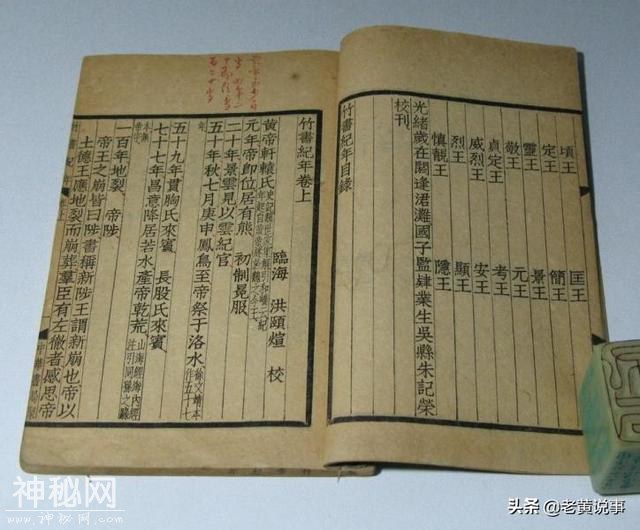 頃王 匡王
定王 簡王
靈王 景王
敬王 元王
貞定王 考王
威烈王 安王
烈王 顯王
慎靚王 隱王
光緒歲在閼逢涒灘國子監肄業生吳縣朱記榮
校刊
竹書紀年目錄
竹書紀年卷上
臨海 洪頤煊 校
黃帝軒轅氏
元年帝即位居有熊 初制冕服
二十年景雲見以雲紀官
五十年秋七月庚申鳳鳥至帝祭于洛水
五十九年貫胸氏來賓 長股氏來賓
七十七年昌意降居若水產帝乾荒 山海經海內經
一百年地裂 帝陟
帝王之崩皆曰陟書稱新陟王謂新崩也帝以
土德王應地裂而崩葬羣臣有左徹者感思帝
神秘网
头条 @老黄说事